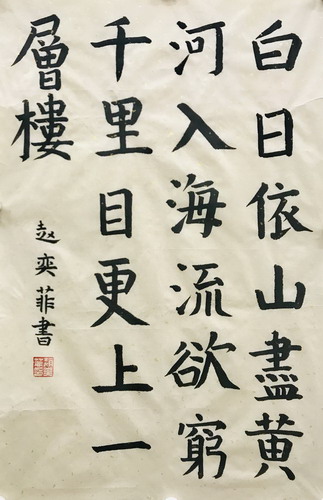 白日依山盡黄
河入海流欲窮
千里目更上一
層樓
赵奕菲書